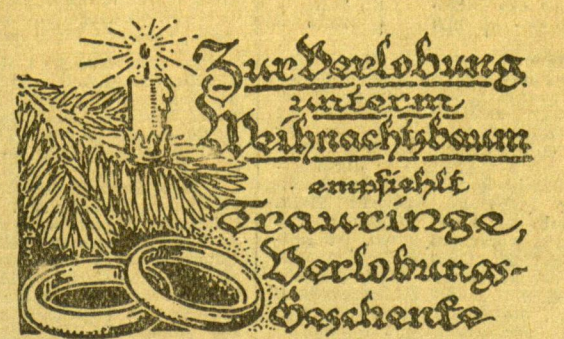 Zur Verlobung
unterm
Weihnachtsbaum
empfiehlt
Trauringe,
Verlobungs-
Geschenke